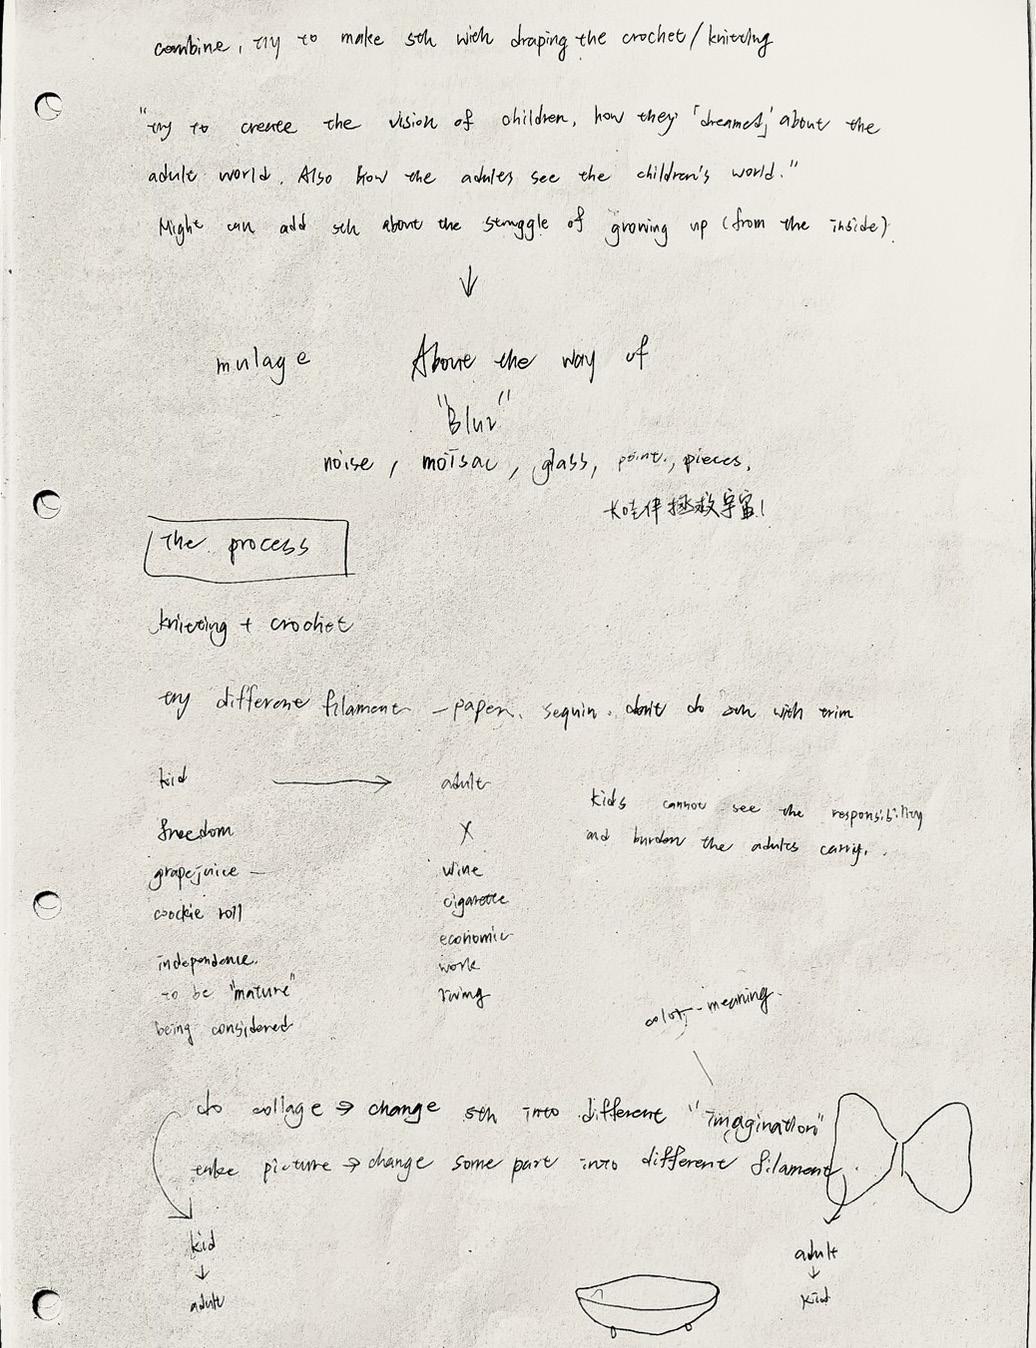 combine, try to make sth with draping the crochet/knitting
"try to create the vision of children, how they「dreamed」about the
adult world. Also how the adults see the children's world."
Might can add sth about the struggle of growing up (from the inside).
mulage
About the way of
"Blur"
noise, moïsac, glass, point, pieces,
拯救宇宙!
The process
knitting + crochet
try different filament - paper, sequin. don't do sth with trim
kid → adult
freedom X
grapejuice — wine
cookie roll cigarette
economic
independence. work
to be "mature" living
being considered
kids cannot see the responsibility
and burden the adults carry.
color - meaning.
do collage → change sth into different "imagination"
take picture → change some part into different filament.
kid
↓
adult
adult
↓
kid